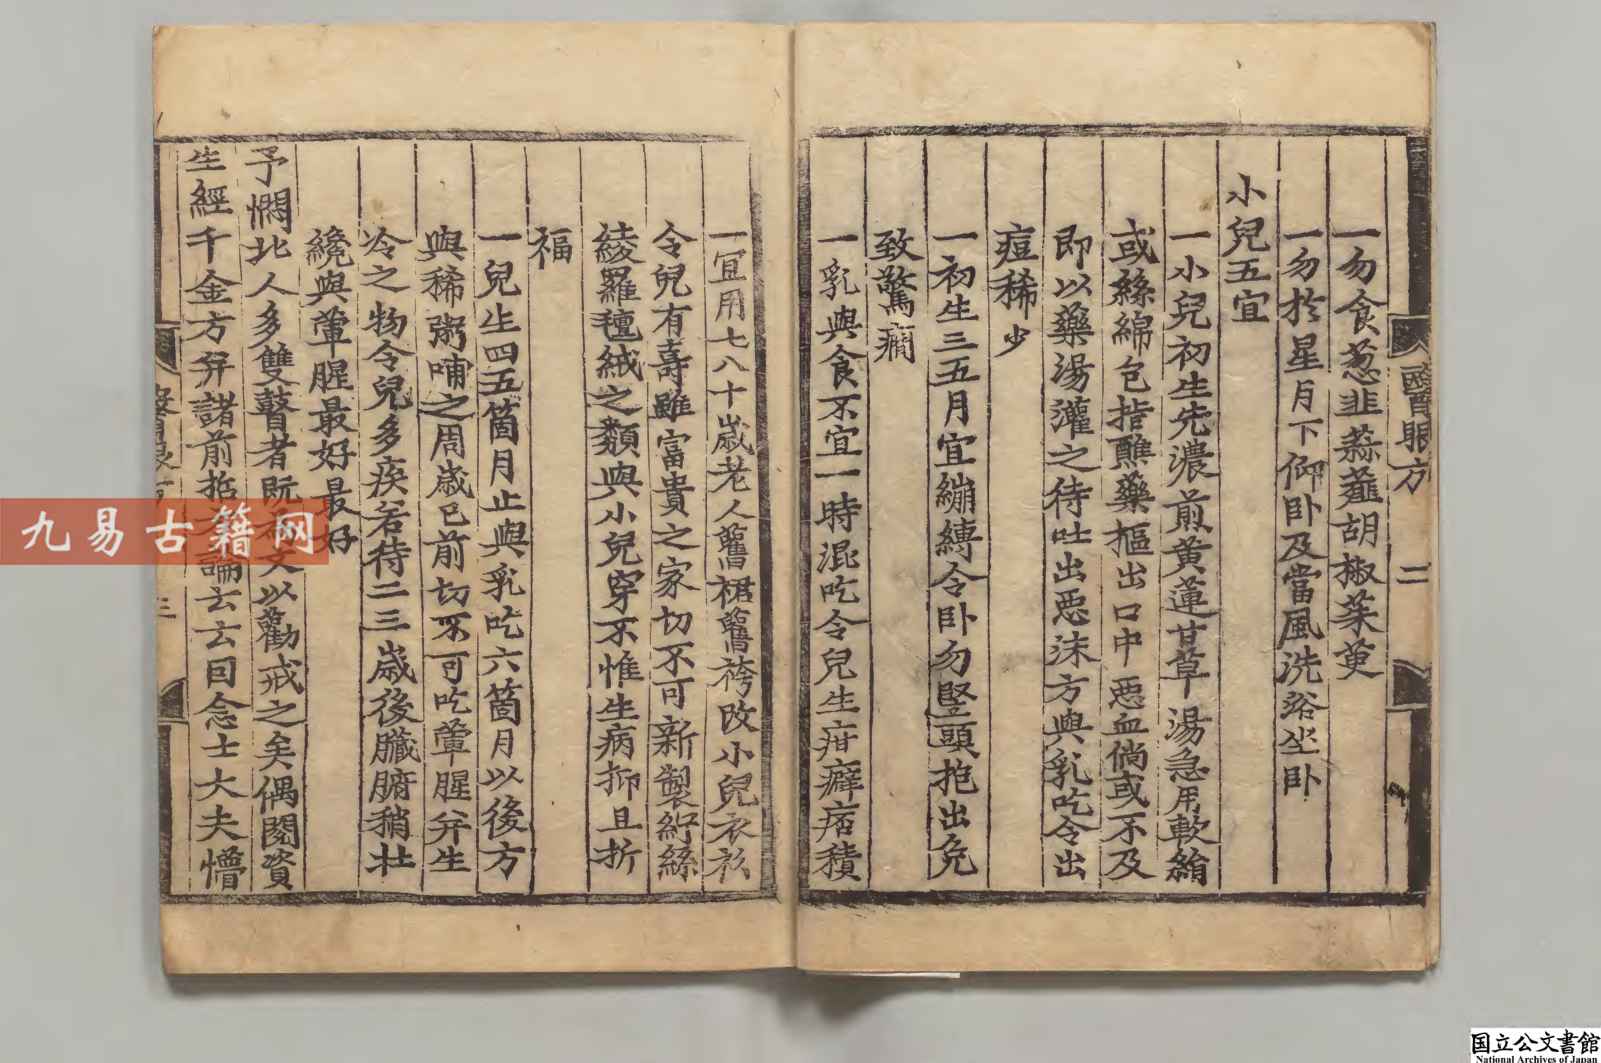 一勿食葱韭蒜薤胡椒茱萸
一勿於星月下仰卧及當風洗浴坐卧
小兒五宜
一小兒初生先濃煎黄蓮甘草湯急用軟絹
或絲綿包指蘸藥摳出口中惡血倘或不及
即以藥湯灌之待吐出惡沫方與乳吃令出
痘稀少
一初生三五月宜綳縛令卧勿竪頭抱出免
致驚癇
一乳與食不宜一時混吃令兒生疳癖痞積
醫眼方
二
一宜用七八十歲老人舊裙舊袴改小兒衣衫
令兒有壽雖富貴之家切不可新製紵絲
綾羅氊絨之類與小兒穿不惟生病抑且折
福
一兒生四五箇月止與乳吃六箇月以後方
與稀粥哺之周歲已前切不可吃葷腥并生
冷之物令兒多疾若待二三歲後臟腑稍壮
纔與葷腥最好最好
予憫北人多雙瞽者既 文以勸戒之矣偶閱資
生經千金方并諸前哲 論云云因念士大夫懵
三
九易古籍网
国立公文書館
National Archives of Japan